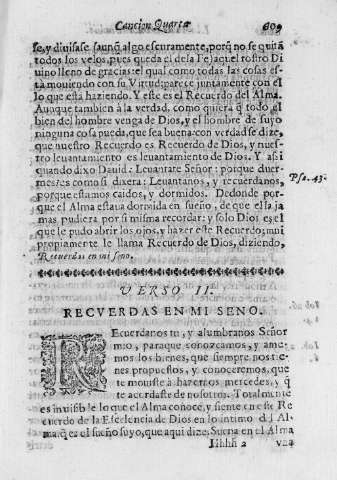 Cancion Quarta 609
se, y diuisase (aunq̃ algo escuramente, porq̃ no se quitã
todos los velos, pues queda el de la Fe) aquel rostro Di
uino lleno de gracias: el qual como todas las cosas es-
tà mouiendo con su Virtud: parece juntamente con el
lo que està haziendo. Y este es el Recuerdo del Alma.
Aunque tambien à la verdad, como quiera q̃ todo el
bien del hombre venga de Dios, y el hombre de suyo
ninguna cosa pueda, que sea buena: con verdad se dize,
que nuestro Recuerdo es Recuerdo de Dios, y nues-
tro leuantamiento es leuantamiento de Dios. Y assi
quando dixo Dauid: Leuantate Señor: porque duer-
mes: es como si dixera: Leuantanos, y recuerdanos,
Psa. 43.
porque estamos caidos, y dormidos. Dedonde por-
que el Alma estaua dormida en sueño, de que ella ja
mas pudiera por si misma recordar: y solo Dios es el
que le pudo abrir los ojos, y hazer este Recuerdo; mui
propiamente le llama Recuerdo de Dios, diziendo,
Recuerdas en mi seno.
VERSO II.
RECVERDAS EN MI SENO.
REcuerdanos tu, y alumbranos Señor
mio, paraque conozcamos, y ame-
mos los bienes, que siempre nos tie-
nes propuestos, y conoceremos, que
te mouiste à hazernos mercedes, y q̃
te acordaste de nosotros. Totalmente
es inuisible lo que el Alma conoce, y siente en este Re
cuerdo de la Excelencia de Dios en lo intimo del Al-
ma, q̃ es el sueño suyo, que aqui dize: Suena en el Alma
Hhhh 2 vna